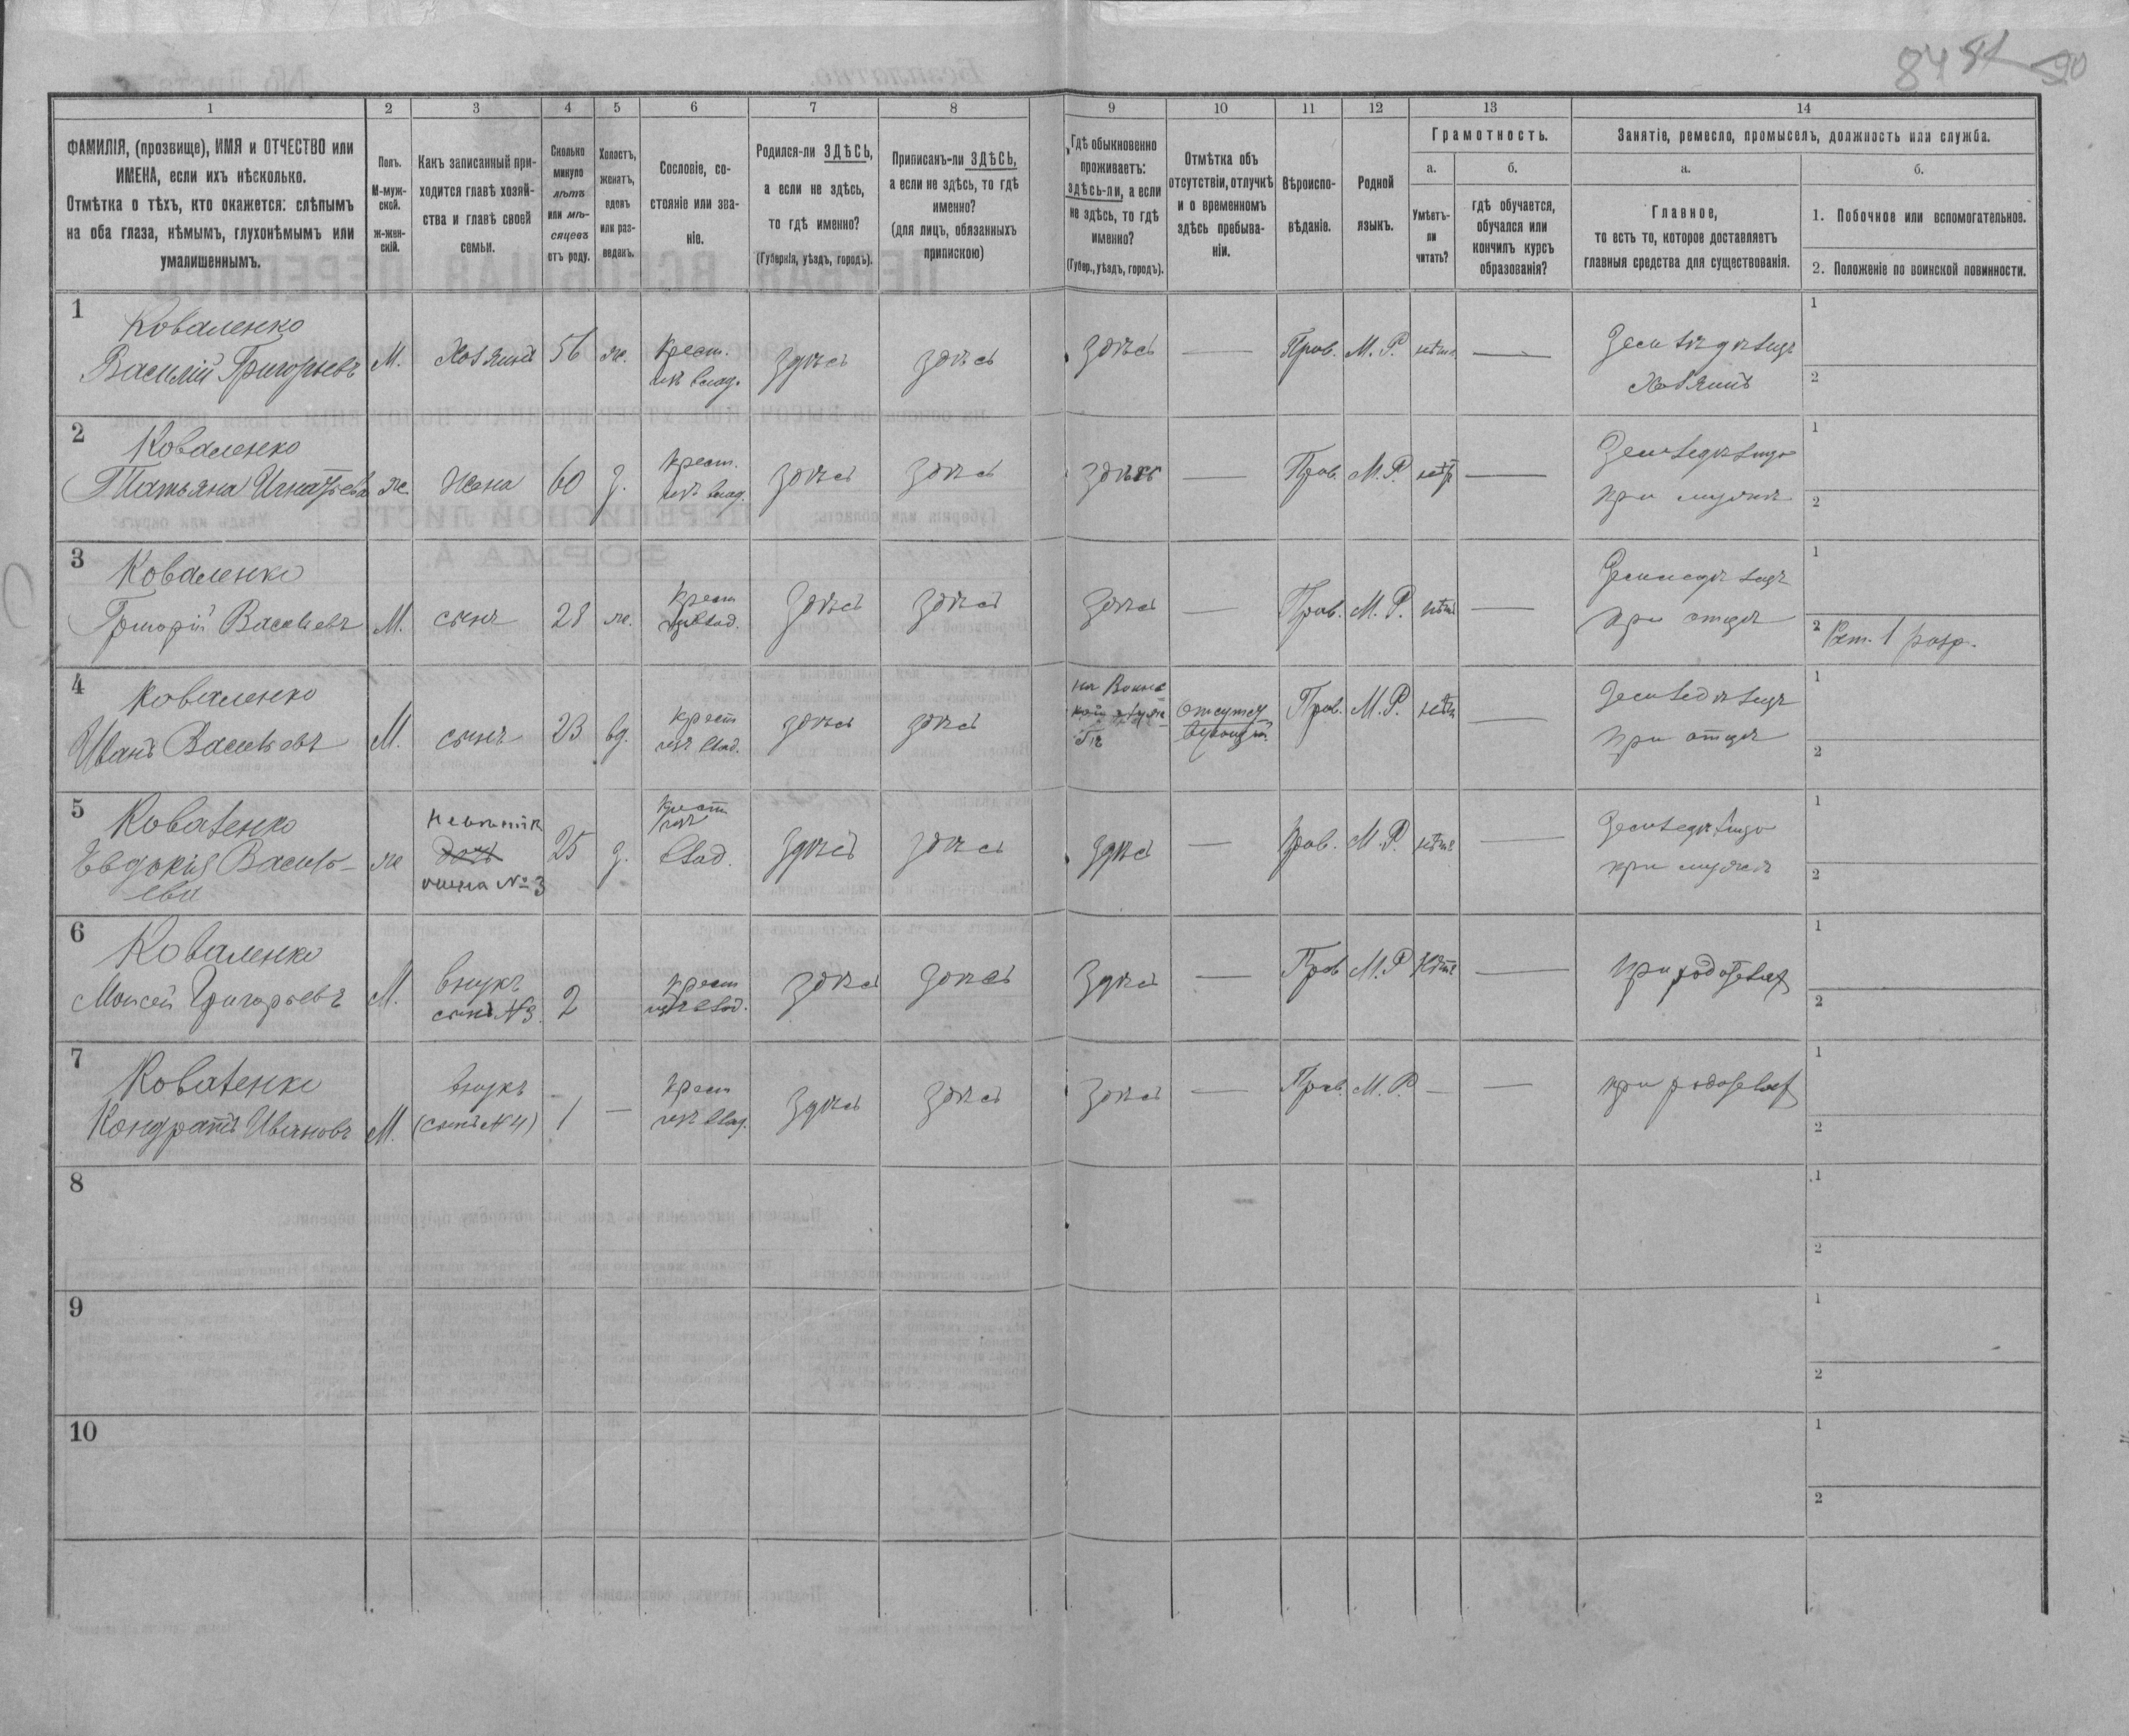 84 81 90
1 2 3 4 5 6 7 8 9 10 11 12 13 14
ФАМИЛІЯ, (прозвище), ИМЯ и ОТЧЕСТВО или
ИМЕНА, если ихъ нѣсколько.
Отмѣтка о тѣхъ, кто окажется: слѣпымъ
на оба глаза, нѣмымъ, глухонѣмымъ или
умалишеннымъ.
Полъ.
М-муж-
ской.
Ж-жен-
скій.
Какъ записанный при-
ходится главѣ хозяй-
ства и главѣ своей
семьи.
Сколько
минуло
лѣтъ
или мѣ-
сяцевъ
отъ роду.
Холостъ,
женатъ,
вдовъ
или раз-
веденъ.
Сословіе, со-
стояніе или зва-
ніе.
Родился-ли ЗДѢСЬ,
а если не здѣсь,
то гдѣ именно?
(Губернія, уѣздъ, городъ).
Приписанъ-ли ЗДѢСЬ,
а если не здѣсь, то гдѣ
именно?
(для лицъ, обязанныхъ
припискою)
Гдѣ обыкновенно
проживаетъ:
здѣсь-ли, а если
не здѣсь, то гдѣ
именно?
(Губер., уѣздъ, городъ).
Отмѣтка объ
отсутствіи, отлучкѣ
и о временномъ
здѣсь пребыва-
ніи.
Вѣроиспо-
вѣданіе.
Родной
языкъ.
Грамотность.
а.
Умѣетъ-
ли
читать?
б.
гдѣ обучается,
обучался или
кончилъ курсъ
образованія?
Занятіе, ремесло, промыселъ, должность или служба.
а.
Главное,
то есть то, которое доставляетъ
главныя средства для существованія.
б.
1. Побочное или вспомогательное.
2. Положеніе по воинской повинности.
1 Коваленко
Василій Григорьевъ М. Хозяинъ 56 ж. Крест. изъ влад. здѣсь здѣсь здѣсь — Прав. М. Р. нѣтъ — Земледѣлецъ 1
Хозяинъ 2
2 Коваленко
Татьяна Игнатьева ж. Жена 60 з. крест. изъ влад. здѣсь здѣсь здѣсь — Прав. М. Р. нѣтъ — 1
при мужѣ 2
3 Коваленко
Григорій Васильевъ М. сынъ 28 ж. Крест изъ влад. здѣсь здѣсь здѣсь — Прав. М. Р. нѣтъ — Земледѣлецъ 1
при отцѣ 2 Рат. 1 разр.
4 Коваленко
Иванъ Васильевъ М. сынъ 23 вд. Крест изъ влад. здѣсь здѣсь на Воинс
кой службѣ Прав. М. Р. нѣтъ — Земледѣлецъ 1
при отцѣ 2
5 Коваленко
Евдокія Василь-
ева ж Невѣстка
дочь
жена № 3 25 з. Крест
изъ
влад. здѣсь здѣсь здѣсь — Прав. М. Р. нѣтъ — 1
при мужѣ 2
6 Коваленко
Моисей Григорьевъ М. внукъ
сынъ №3. 2 Крест
изъ влад. здѣсь здѣсь здѣсь — Прав М. Р нѣтъ — при 1
2
7 Коваленко
Кондратъ Ивановъ М. внукъ
(сынъ №4) 1 — Крест
изъ влад. здѣсь здѣсь здѣсь — Прав. М. Р. — — при 1
2
8 1
2
9 1
2
10 1
2